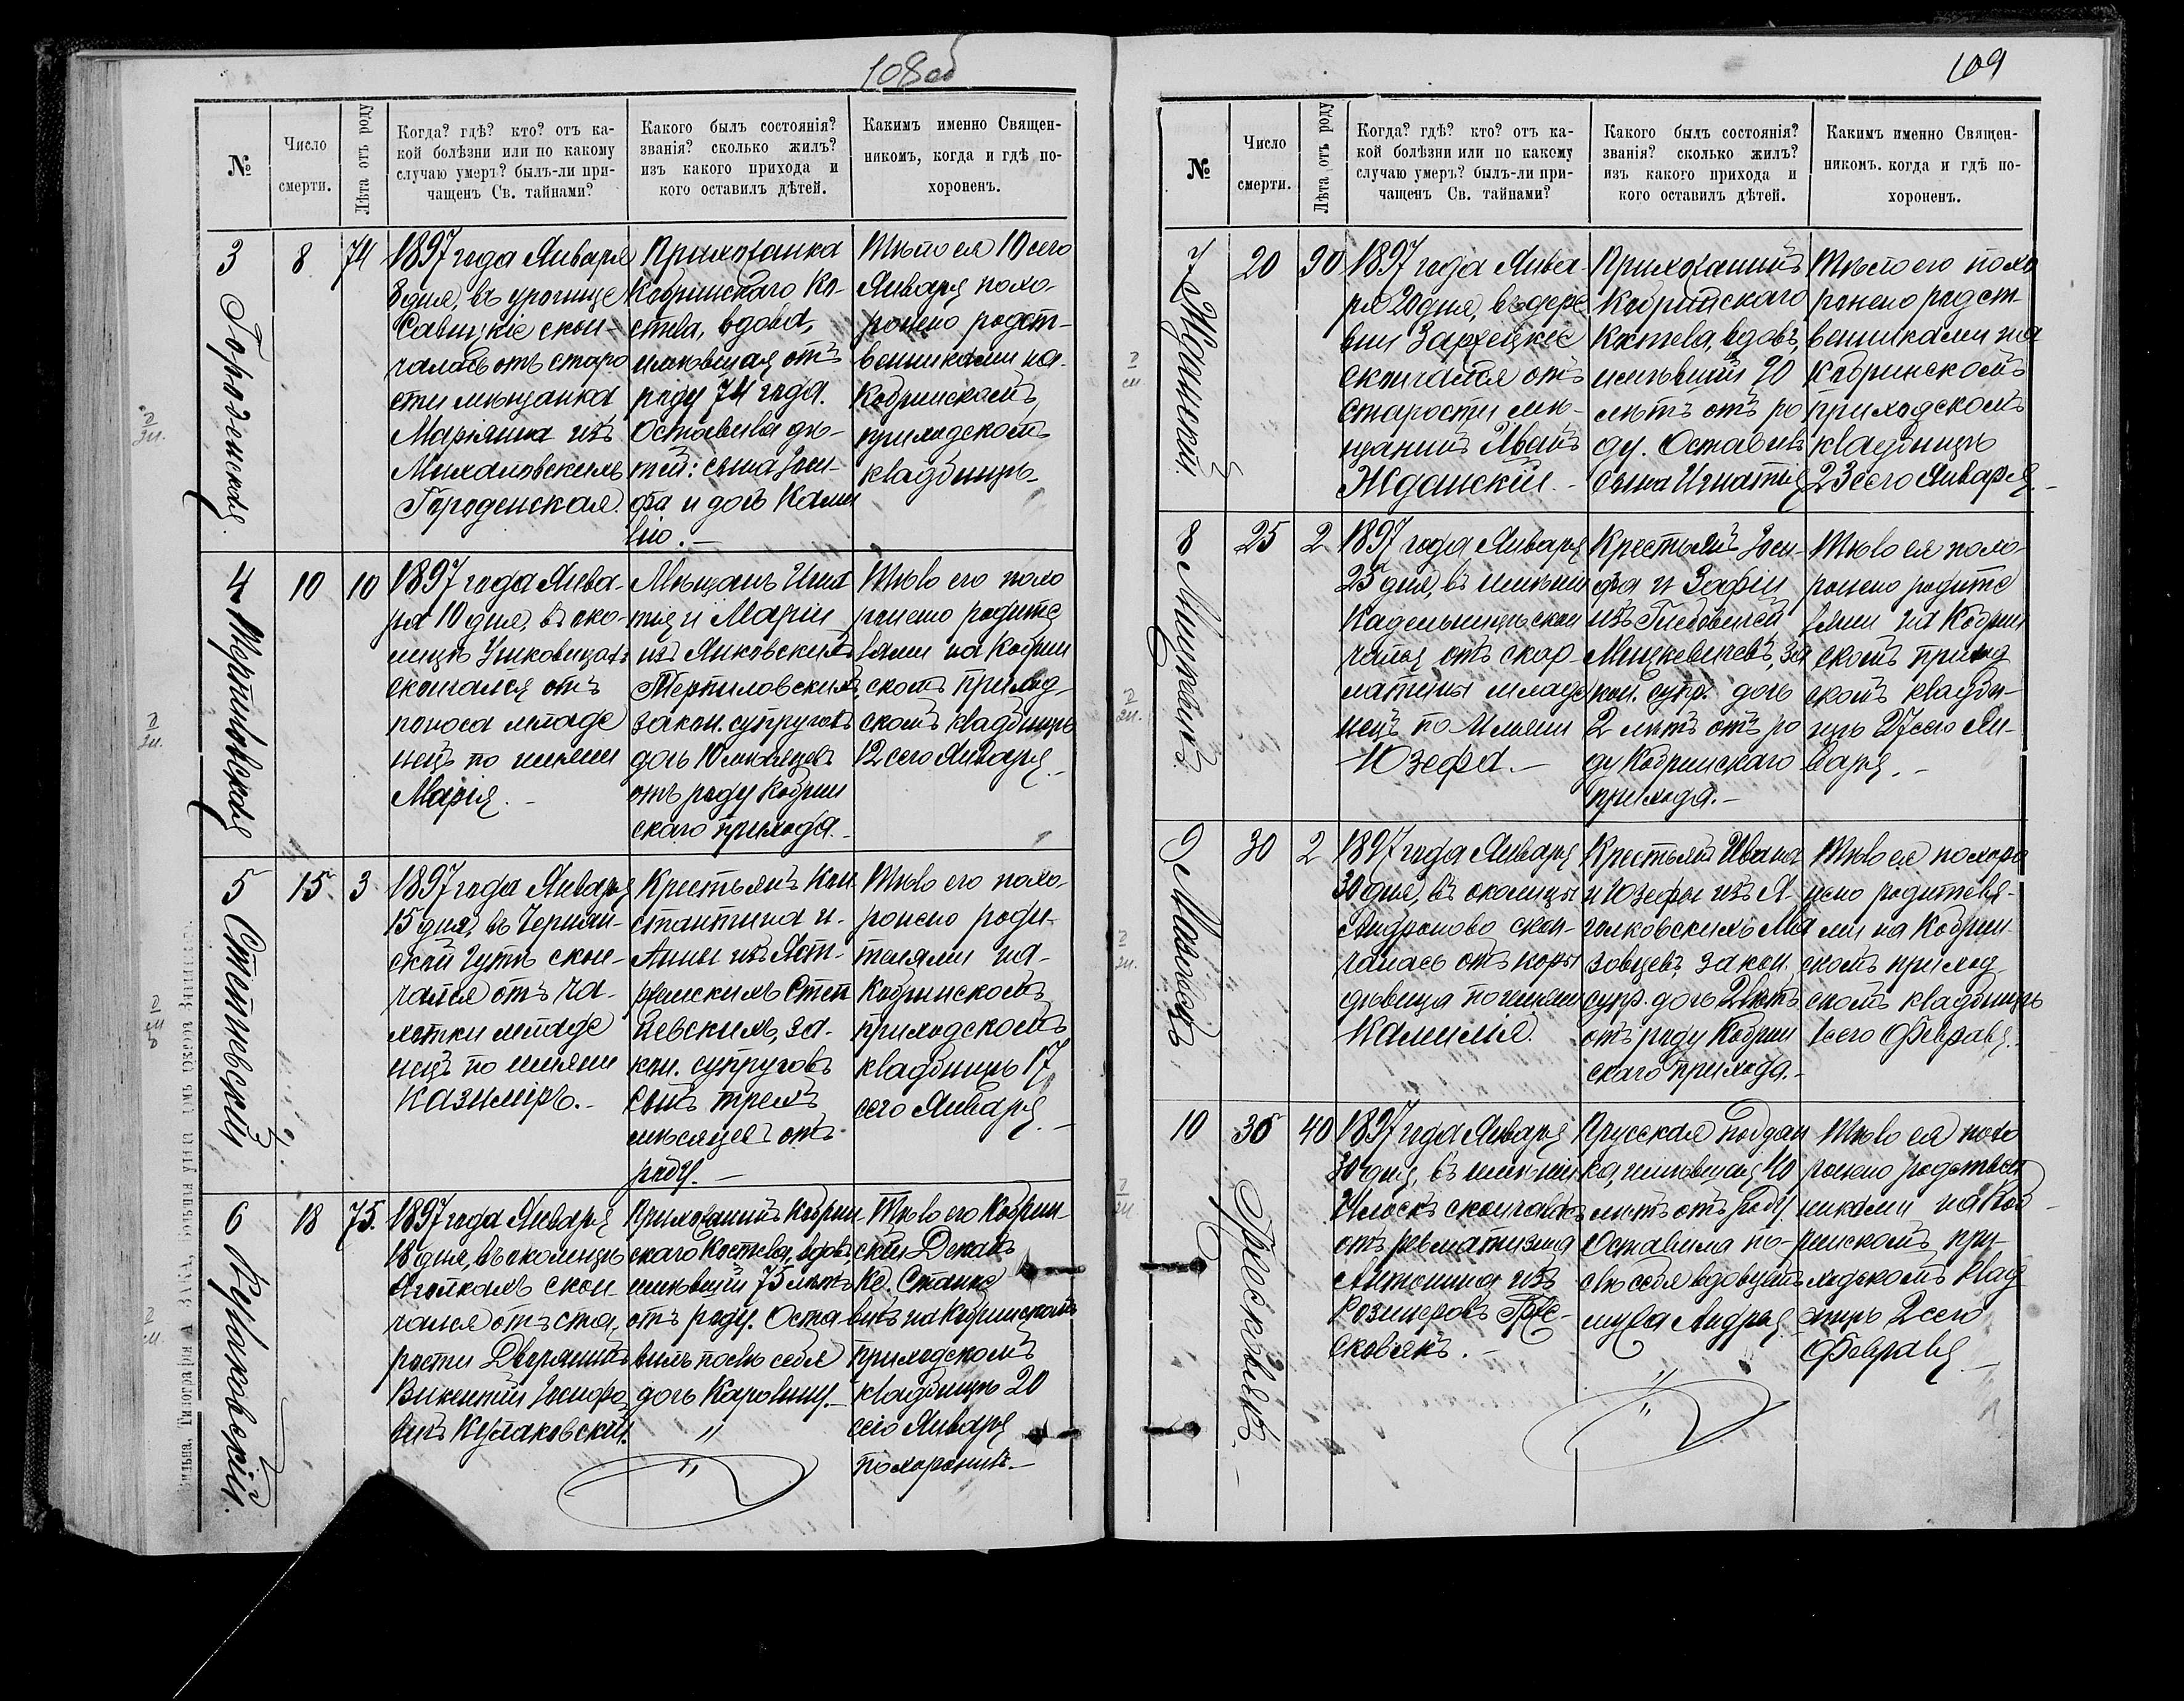 108об
№
Число
смерти.
Лѣта отъ роду
Когда? гдѣ? кто? отъ ка-
кой болѣзни или по какому
случаю умеръ? былъ-ли при-
чащенъ Св. тайнами?
Какого былъ состоянія?
званія? сколько жилъ?
изъ какого прихода и
кого оставилъ дѣтей.
Какимъ именно Священ-
никомъ, когда и гдѣ по-
хороненъ.
3
Городенская.
8
74
1897 года Января
8 дня, въ урочище
Савицкіе скон-
чалась отъ старо
сти мѣщанка
Маріянна изъ
Михаловскихъ
Городенская.
Прихожанка
Кобринскаго Ко-
стела, вдова,
имѣвшая отъ
роду 74 года.
Оставила дѣ-
тей: сына Іоси-
фа и дочь Камил
лію.–
Тѣло ея 10 сего
Января похо-
ронено родст-
венниками на
Кобринскомъ
приходскомъ
кладбищѣ
4
Терпиловская
10
10
1897 года Янва-
ря 10 дня, въ око-
лицѣ
скончался отъ
поноса младе
нецъ по имени
Марія.–
Мѣщанъ Игна
тія и Маріи
изъ Янковскихъ
Терпиловскихъ
закон. супруговъ
дочь 10 мѣсяцевъ
отъ роду Кобрин
скаго прихода.–
Тѣло его похо
ронено родите
лями на Кобрин
скомъ приход-
скомъ кладбищѣ
12 сего Января.–
5
Степневскій
15.
3
1897 года Января
15 дня, въ Черніан-
ской гутѣ скон-
чался отъ ча-
хотки младе
нецъ по имени
Казиміръ.–
Крестьянъ Кон
стантина и
Анны изъ Яст-
рженскихъ Степ
невскихъ, за-
кон. супруговъ
сынъ трехъ
мѣсяцевъ отъ
роду.–
Тѣло его похо-
ронено роди-
телями на
Кобринскомъ
приходскомъ
кладбищѣ 17
сего Января.–
6
Кулаковскій.
18
75.
1897 года Января
18 дня, въ околицѣ
Яголкахъ скон
чался отъ ста-
рости Дворянинъ
Викентій Іосифо
вичъ Кулаковскій.
Прихожанинъ Кобрин-
скаго Костела, вдовъ,
имѣвшій 75 лѣтъ
отъ роду. Оста-
вилъ послѣ себя
дочь Каролину.–
Тѣло его Кобрин-
скій Деканъ
Кс. Станке
вичъ на Кобринскомъ
приходскомъ
кладбищѣ 20
сего Января
похоронилъ.–
109
№
Число
смерти.
Лѣта отъ роду
Когда? гдѣ? кто? отъ ка-
кой болѣзни или по какому
случаю умеръ? былъ-ли при-
чащенъ Св. тайнами?
Какого былъ состоянія?
званія? сколько жилъ?
изъ какого прихода и
кого оставилъ дѣтей.
Какимъ именно Священ-
никомъ. когда и гдѣ по-
хороненъ.
7
Жданскій.
20
90
1897 года Янва-
ря 20 дня, въ дере
вни Зарѣцкіе
скончался отъ
старости мѣ-
щанинъ Иванъ
Жданскій.–
Прихожанинъ
Кобринскаго
Костела, вдовъ,
имѣвшій 90
лѣтъ отъ ро
ду. Оставилъ
сына Игнатія
Тѣло его похо
ронено родст-
венниками на
Кобринскомъ
приходскомъ
кладбищѣ
23 сего Января.–
8
Мицкевичъ
25
2
1897 года Января
25 дня, въ имѣніи
скон
чалась отъ скар-
латины младе
нецъ по имени
Юзефа.–
Крестьянъ Іоси-
фа и Зофіи
изъ
Мицкевичевъ, за
кон. супр. дочь
2 лѣтъ отъ ро
ду Кобринскаго
прихода.–
Тѣло ея похо-
ронено родите
лями на Кобрин
скомъ приход
скомъ кладби-
щѣ 27 сего Ян-
варя.–
9
30
2
1897 года Января
30 дня, въ околицы
Андроново скон-
чалась отъ коры
дѣвица по имени
Камилія.
Крестьянъ Ивана
и Юзефы изъ Я-
голковскихъ Ма
зовцевъ, закон.
супр. дочь 2 лѣтъ
отъ роду Кобрин
скаго прихода.–
Тѣло ея похоро
нено родителя-
ми на Кобрин-
скомъ приход-
скомъ кладбищѣ
1 сего Февраля.
10
30
40
1897 года Января
30 дня, въ имѣніи
Илоскъ скончалась
отъ ревматизма
Антонина изъ
Розинеровъ Гре-
сковякъ.–
Прусская поддан
ка, имѣвшая 40
лѣтъ отъ роду.
Оставила по-
слѣ себя вдовцемъ
мужа Андрея.
Тѣло ея похо
ронено родствен
никами на Коб-
ринскомъ при-
ходскомъ клад
бищѣ 2 сего
Февраля.–